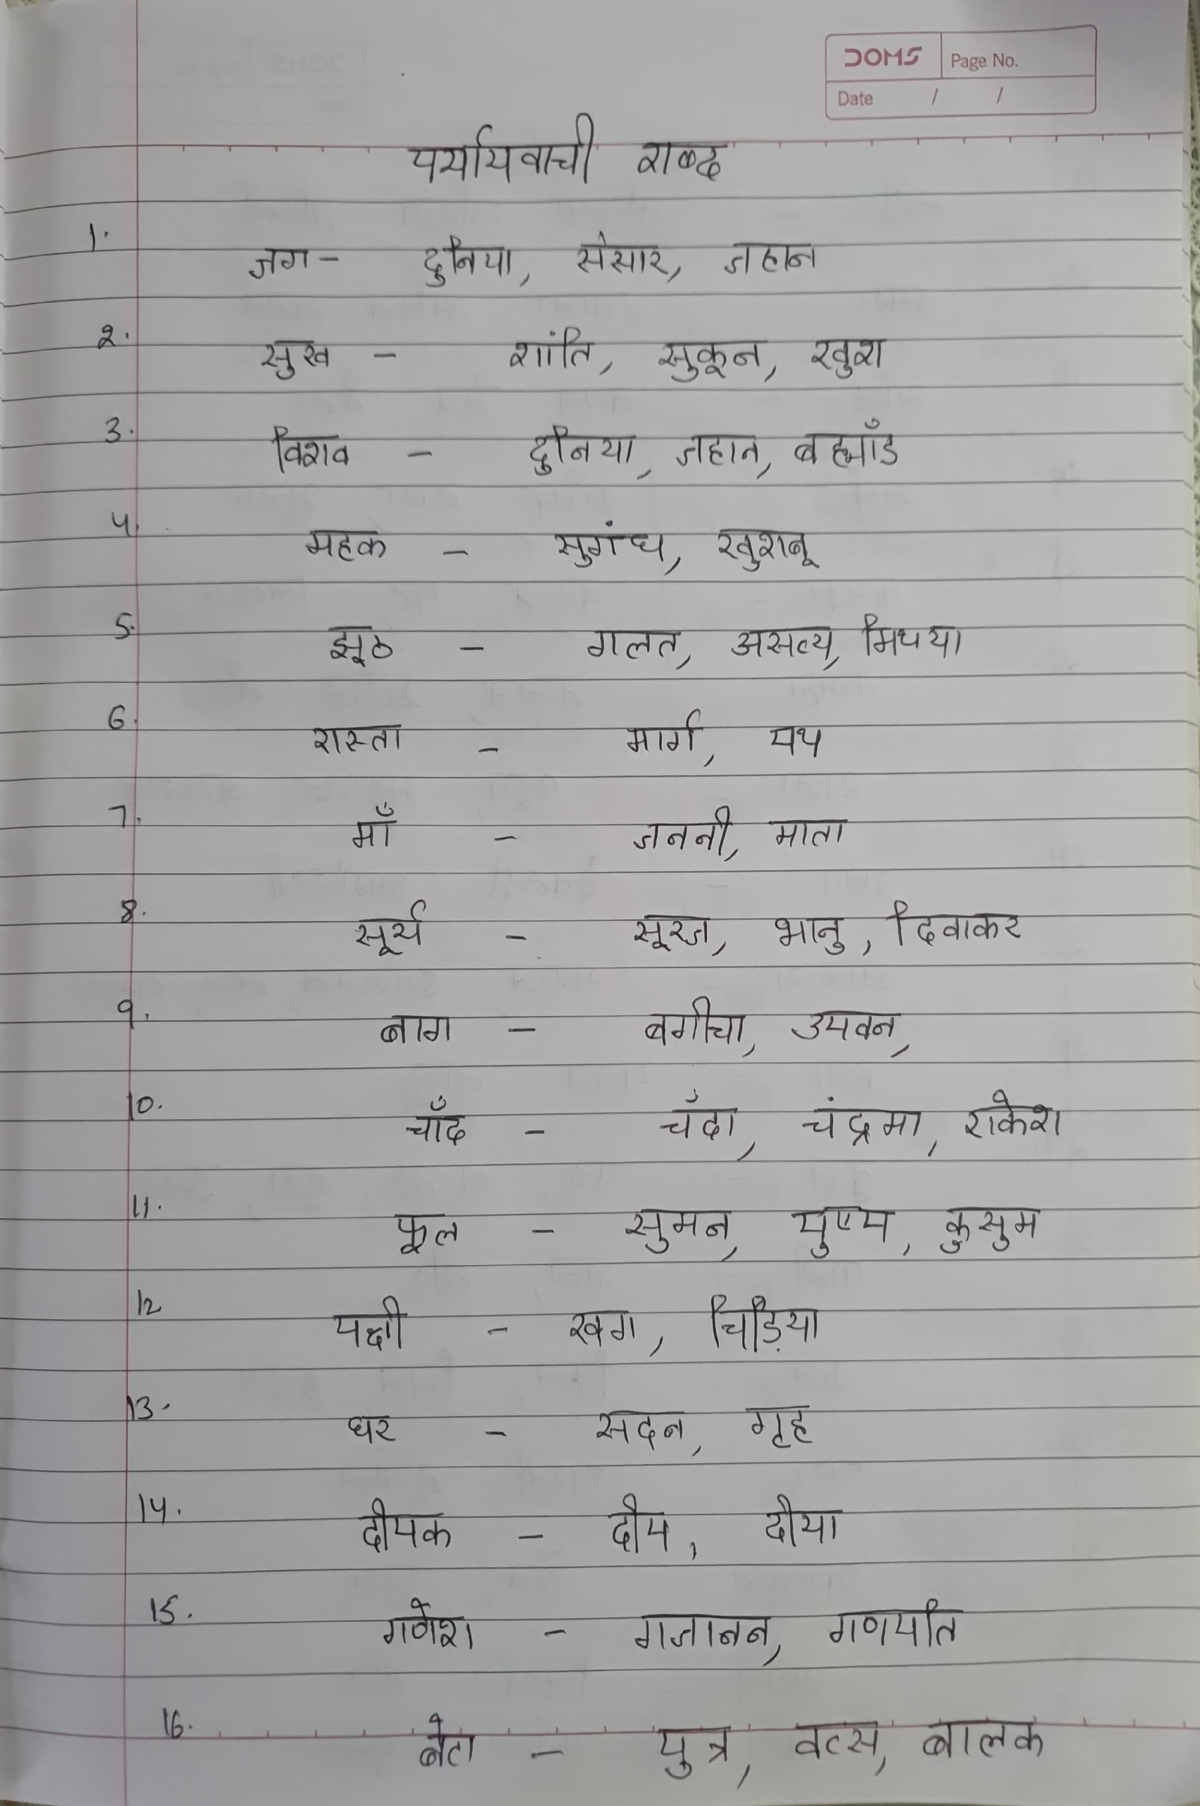 DOMS Page No.
Date / /
पर्यायवाची शब्द
1. जग - दुनिया, संसार, जहान
2. सुख - शांति, सुकून, खुश
3. विशव - दुनिया, जहान, बह्माँड
4. महक - सुगंध, खुशबू
5. झूठ - गलत, असत्य, मिथया
6. रास्ता - मार्ग, पथ
7. माँ - जननी, माता
8. सूर्य - सूरज, भानु, दिवाकर
9. बाग - बगीचा, उपवन,
10. चाँद - चँदा, चंद्रमा, राकेश
11. फूल - सुमन, पुष्प, कुसुम
12 पक्षी - खग, चिड़िया
13. घर - सदन, गृह
14. दीपक - दीप, दीया
15. गणेश - गजानन, गणपति
16. बेटा - पुत्र, वत्स, बालक